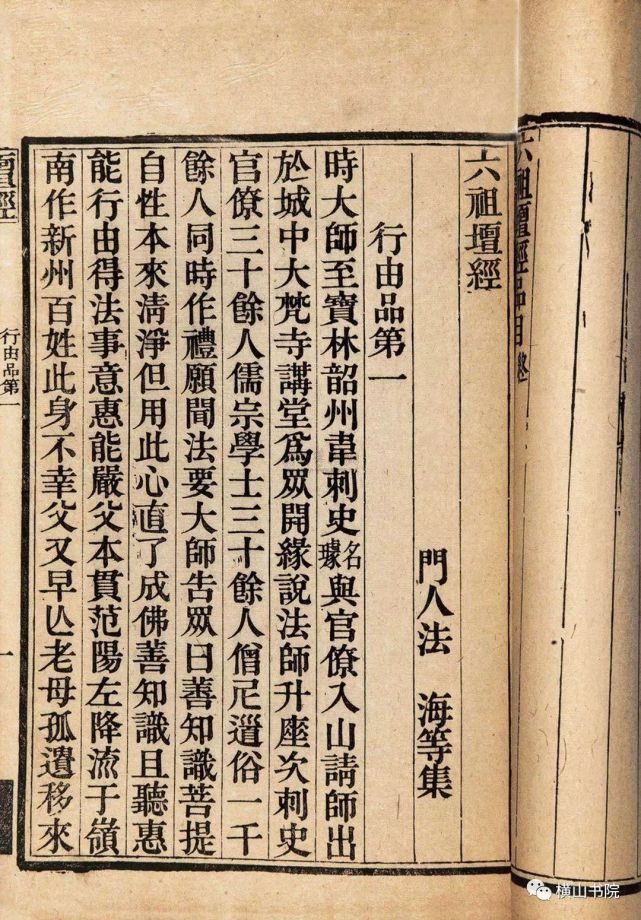 六祖壇經品目終
六祖壇經
門人法　海等集
行由品第一
時大師至寶林韶州韋刺史名璩與官僚入山請師出
於城中大梵寺講堂爲眾開緣說法師升座次刺史
官僚三十餘人儒宗學士三十餘人僧尼道俗一千
餘人同時作禮願聞法要大師告眾曰善知識菩提
自性本來清淨但用此心直了成佛善知識且聽惠
能行由得法事意惠能嚴父本貫范陽左降流于嶺
南作新州百姓此身不幸父又早亾老母孤遺移來
壇經
行由品第一
一
横山书院